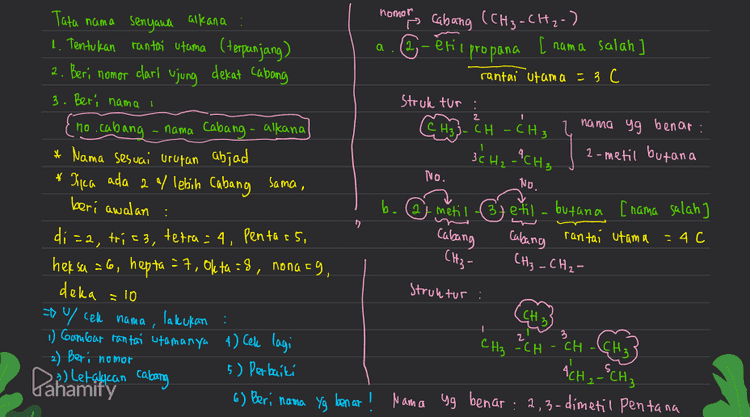 Tata nama senyawa alkana :
1. Tentukan rantai utama (terpanjang)
2. Beri nomor dari ujung dekat cabang
3. Beri nama :
no.cabang - nama cabang - alkana
* Nama sesuai urutan abjad
* Jika ada 2 a/ lebih cabang sama,
beri awalan :
di = 2, tri = 3, tetra = 4, Penta = 5,
heksa = 6, hepta = 7, Okta = 8, nona = 9,
deka = 10
=> U/ cek nama, lakukan :
1) Gambar rantai utamanya
2) Beri nomor
3) Letakkan cabang
4) Cek lagi
5) Perbaiki
6) Beri nama yg benar !
Pahamify
nomor cabang (CH3-CH2-)
a. 2 - etil propana [nama salah]
rantai utama = 3 C
Struktur :
CH3 - 2 CH - 1 CH3
3 CH2 - 4 CH3
nama yg benar :
2-metil butana
No. No.
b. 2 - metil - 3 - etil - butana [nama salah]
Cabang Cabang rantai utama = 4 C
CH3- CH3-CH2-
Struktur :
CH3
1 CH3 - 2 CH - 3 CH - CH3
4 CH2 - 5 CH3
Nama yg benar : 2,3-dimetil Pentana